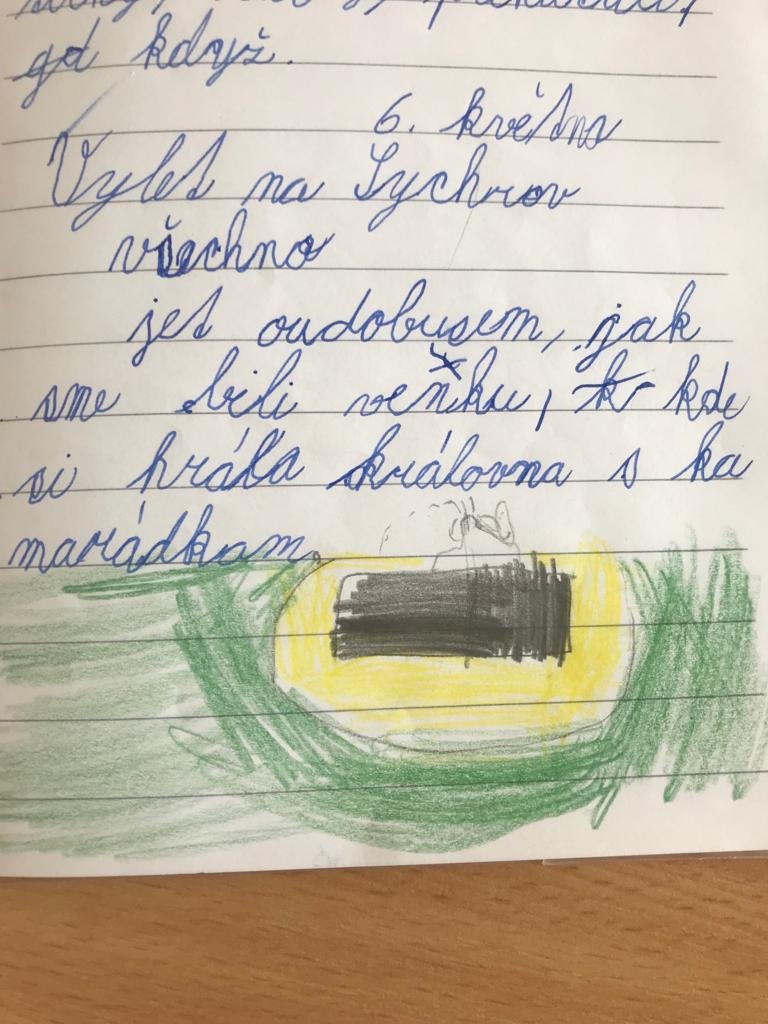 gd když.
6. května
Výlet na Sychrov
všechno
jet oudobusem, jak
sme bili venku, k kde
si hrála královna s ka
marádkam.